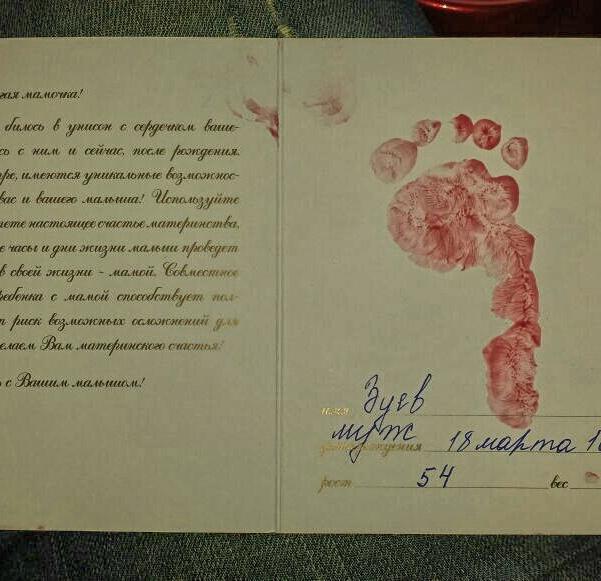 гая мамочка!
билось в унисон с сердечком ваше-
сь с ним и сейчас, после рождения.
ре, имеются уникальные возможнос-
вас и вашего малыша! Используйте
ете настоящее счастье материнства,
е часы и дни жизни малыш проведет
в своей жизни - мамой. Совместное
ребенка с мамой способствует пол-
т риск возможных осложнений для
елаем Вам материнского счастья!
с Вашим малышом!
имя Зуев
муж
дата рождения 18 марта 18
рост 54 вес